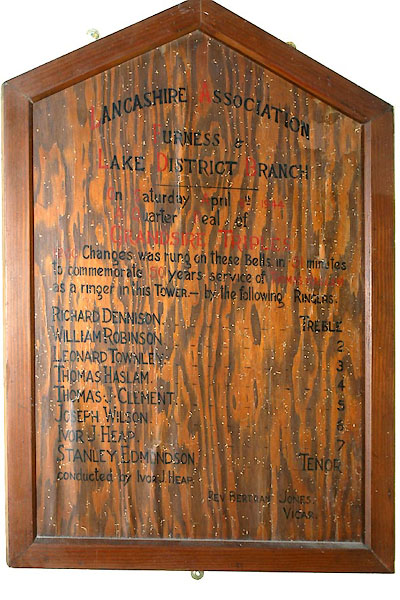 Lancashire Association
Furness &
Lake District Branch
On Saturday April
A Quarter Peal of
Grandsire Triples
Changes was rung on these Bells in minutes
to commemorate years service of
as a ringer in this Tower.— by the following Ringers.
Richard Dennison. Treble
William Robinson. 2
Leonard Townley. 3
Thomas Haslam. 4
Thomas Clement. 5
Joseph Wilson. 6
Ivor J Heap. 7
Stanley Edmondson Tenor
conducted by Ivor J. Heap.
Rev Bertram Jones.
Vicar.